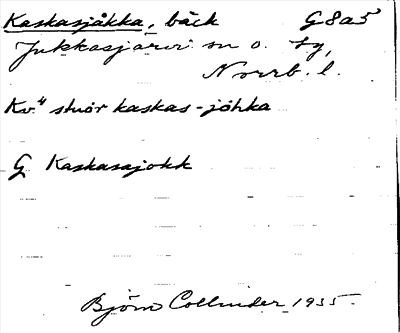 Kaskasjåkka, bäck G8a5
Jukkasjärvi sn o. tg,
Norrb. l.
Kv." stuor kaskas-jåhka
G Kaskasajokk
Björn Collinder 1935.